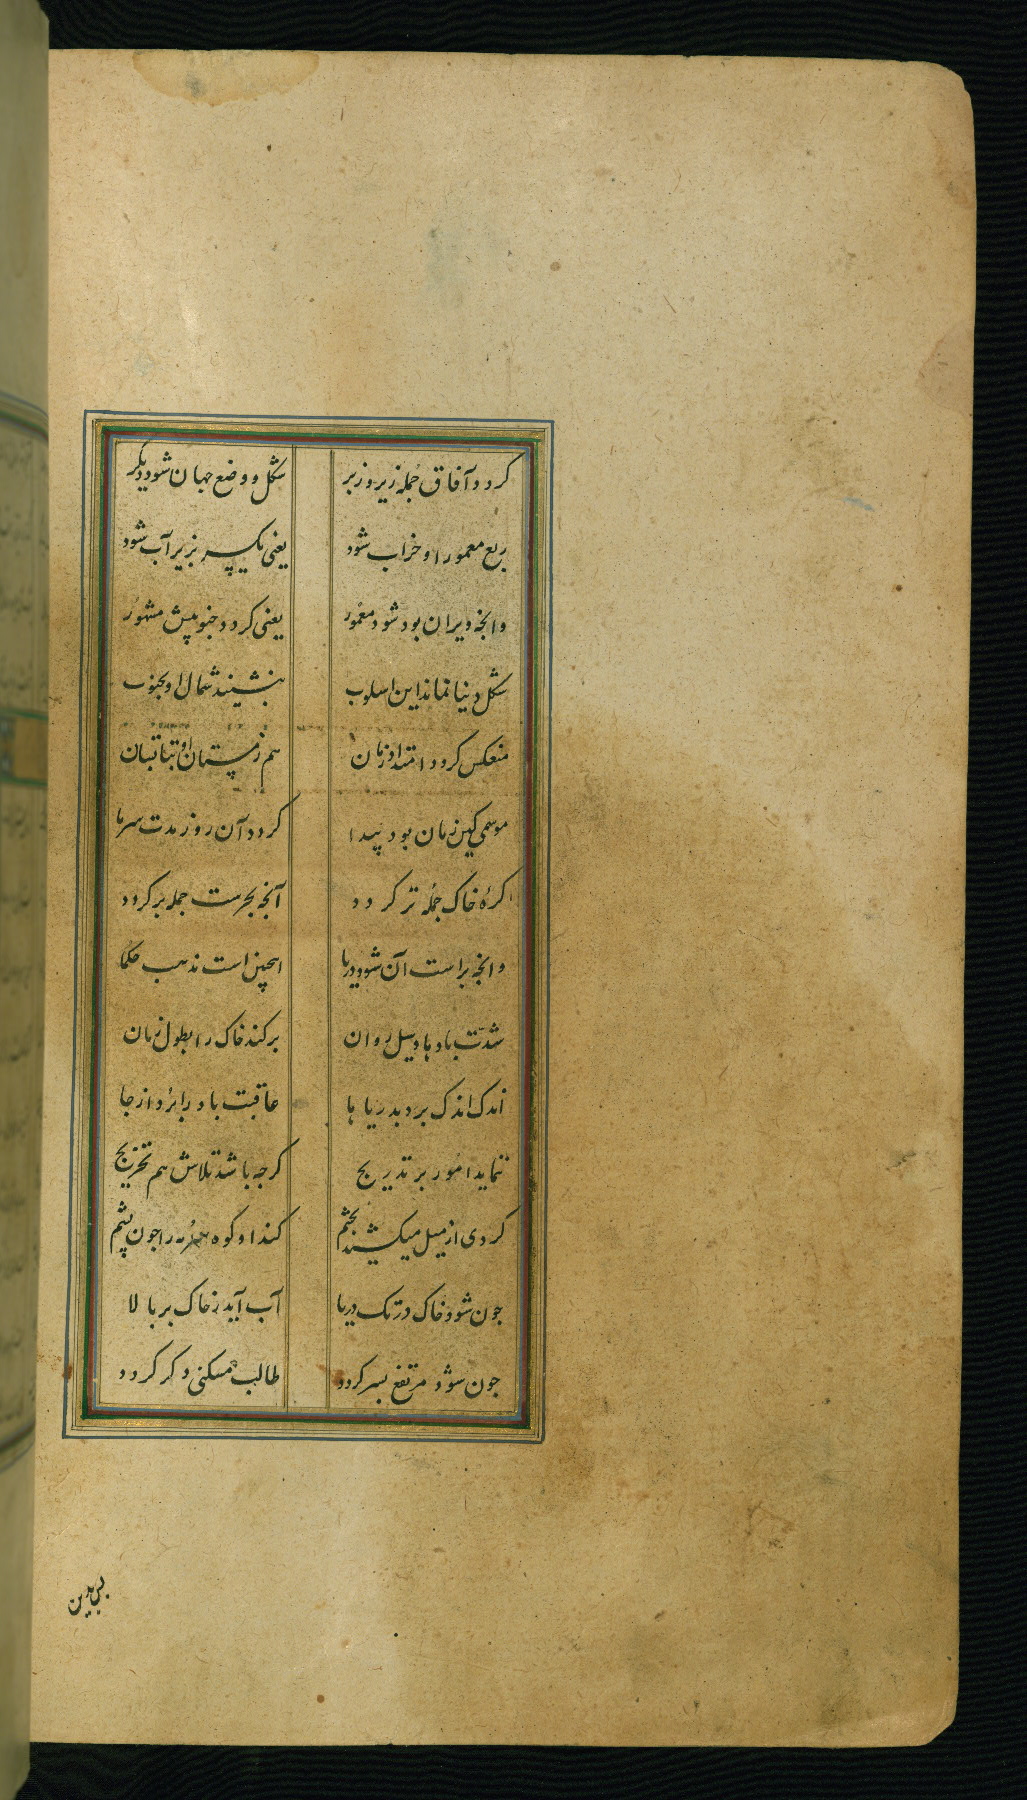 کردد آفاق جمله زیر و زبر شکل و وضع جهان شود دیکر
ربع معمور او خراب شود یعنی یکسر بزیر آب شود
وانجه ویران بود شود معمور یعنی کردد جنوبیش مشهور
شکل دنیا نماند این اسلوب بنشیند شمال او بجنوب
منعکس کردد امتداد زمان هم زمستان او بتابستان
موسمی کین زمان بود پیدا کردد آن روز مدت سرما
کرهٔ خاک جمله تر کردد آنجه بحرست جمله بر کردد
وانجه بر است آن شود دریا اینجنین است مذهب حکما
شدت باد ها و سیل روان برکند خاک را بطول زمان
اندک اندک برد بدریا ها عاقبت باد را برد از جا
نماید امور بر تدریج کرجه باشد تلاش هم تخریج
کردی از میل میکشند بجشم کند او کوه را جون پشم
جون شود خاک در تک دریا آب آید ز خاک بر بالا
جون شود مرتفع بسر کردد طالب مسکنی دکر کردد
بس بدین